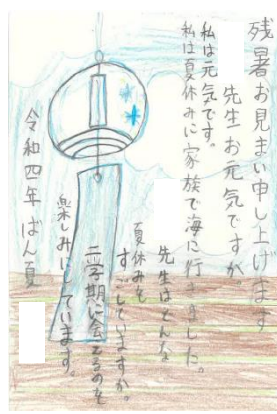 残暑お見まい申し上げます
先生お元気ですか。
私は元気です。
私は夏休みに家族で海に行きました。
先生はどんな
夏休みを
すごしていますか。
二学期に会えるのを
楽しみにしています。
令和四年 ばん夏